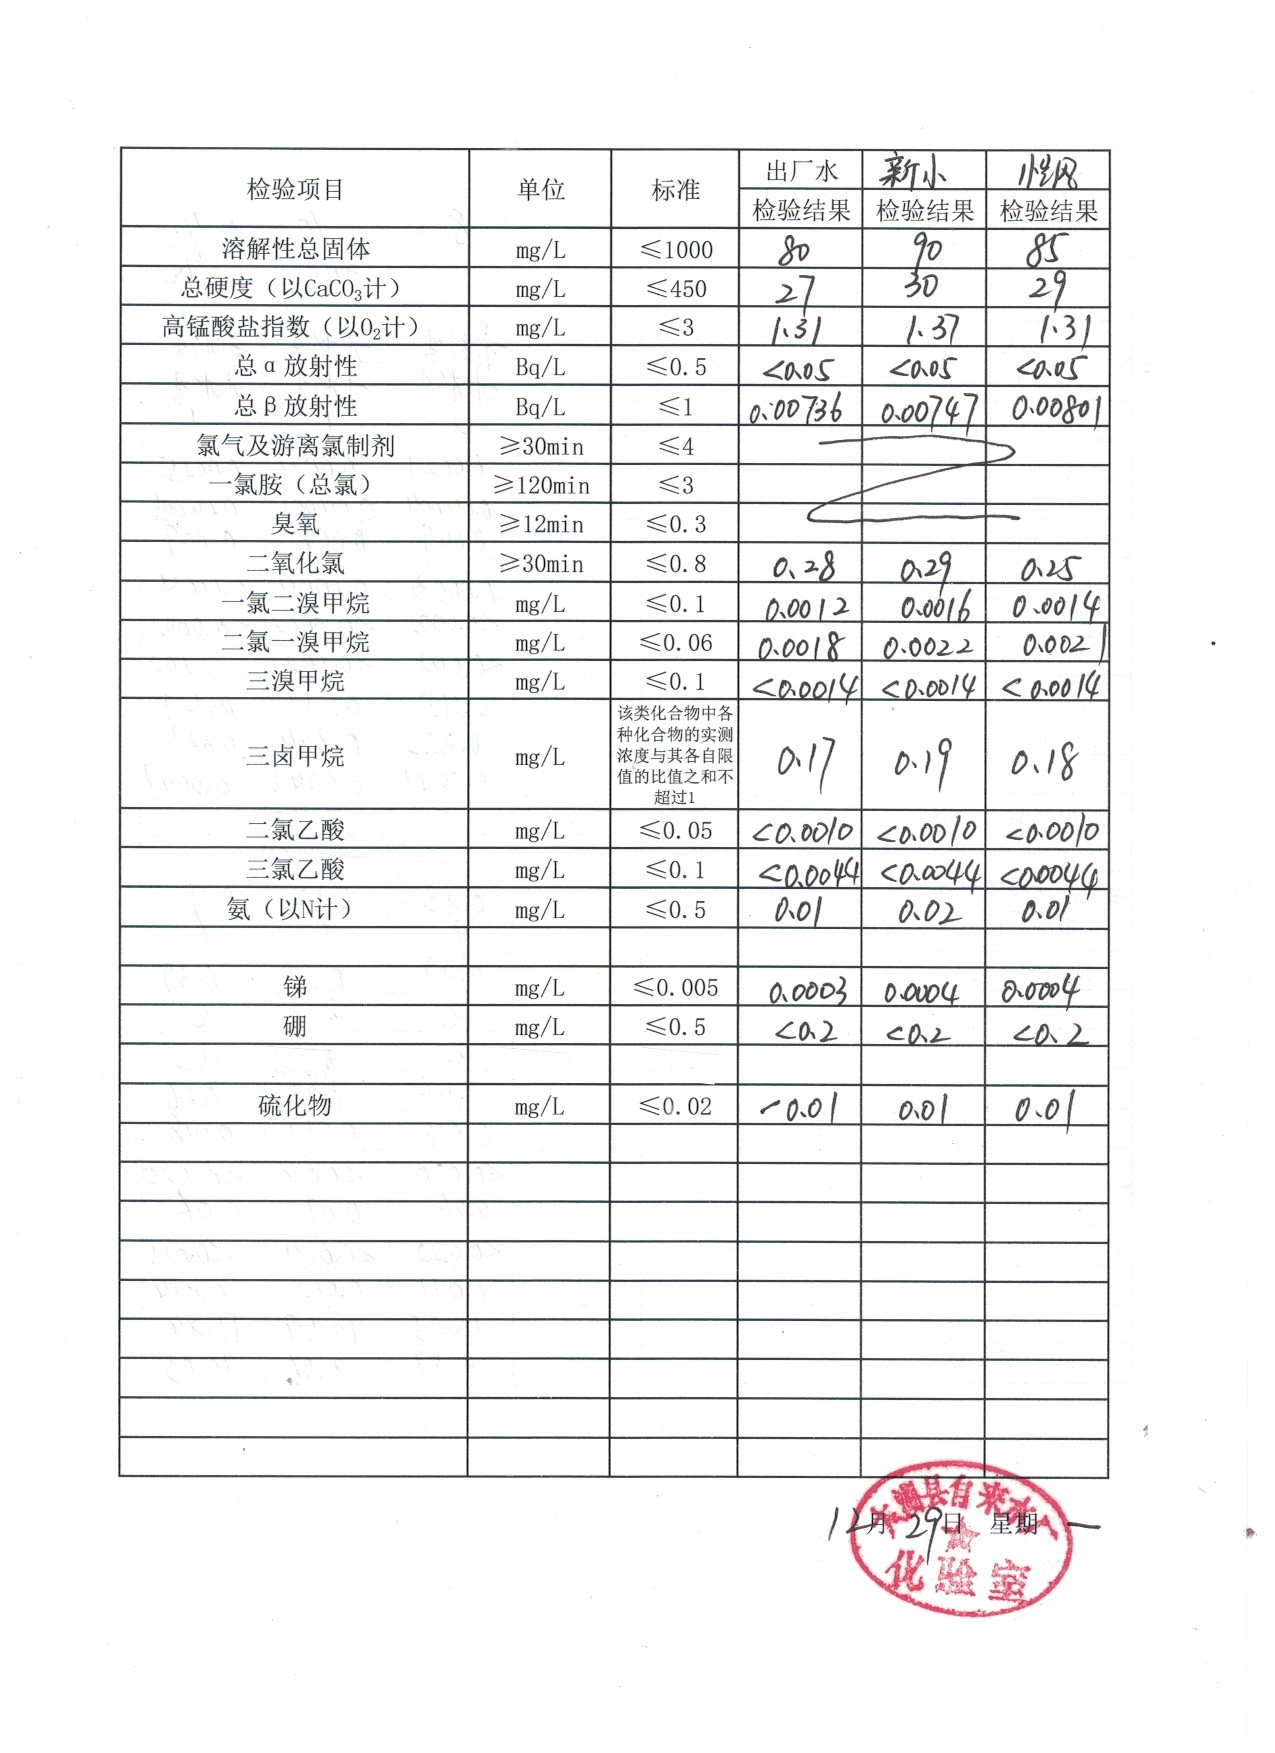 检验项目 单位 标准 出厂水 新小
检验结果 检验结果 检验结果
溶解性总固体 mg/L ≤1000 80 90 85
总硬度（以CaCO₃计） mg/L ≤450 27 30 29
高锰酸盐指数（以O₂计） mg/L ≤3 1.31 1.37 1.31
总α放射性 Bq/L ≤0.5 <0.05 <0.05 <0.05
总β放射性 Bq/L ≤1 0.00736 0.00747 0.00801
氯气及游离氯制剂 ≥30min ≤4
一氯胺（总氯） ≥120min ≤3
臭氧 ≥12min ≤0.3
二氧化氯 ≥30min ≤0.8 0.28 0.29 0.25
一氯二溴甲烷 mg/L ≤0.1 0.0012 0.0016 0.0014
二氯一溴甲烷 mg/L ≤0.06 0.0018 0.0022 0.0021
三溴甲烷 mg/L ≤0.1 <0.0014 <0.0014 <0.0014
三卤甲烷 mg/L 该类化合物中各
种化合物的实测
浓度与其各自限
值的比值之和不
超过1 0.17 0.19 0.18
二氯乙酸 mg/L ≤0.05 <0.0010 <0.0010 <0.0010
三氯乙酸 mg/L ≤0.1 <0.0044 <0.0044 <0.0044
氨（以N计） mg/L ≤0.5 0.01 0.02 0.01
锑 mg/L ≤0.005 0.0003 0.0004 0.0004
硼 mg/L ≤0.5 <0.2 <0.2 <0.2
硫化物 mg/L ≤0.02 0.01 0.01 0.01
12月29日 星期一
县自来水厂
化验室